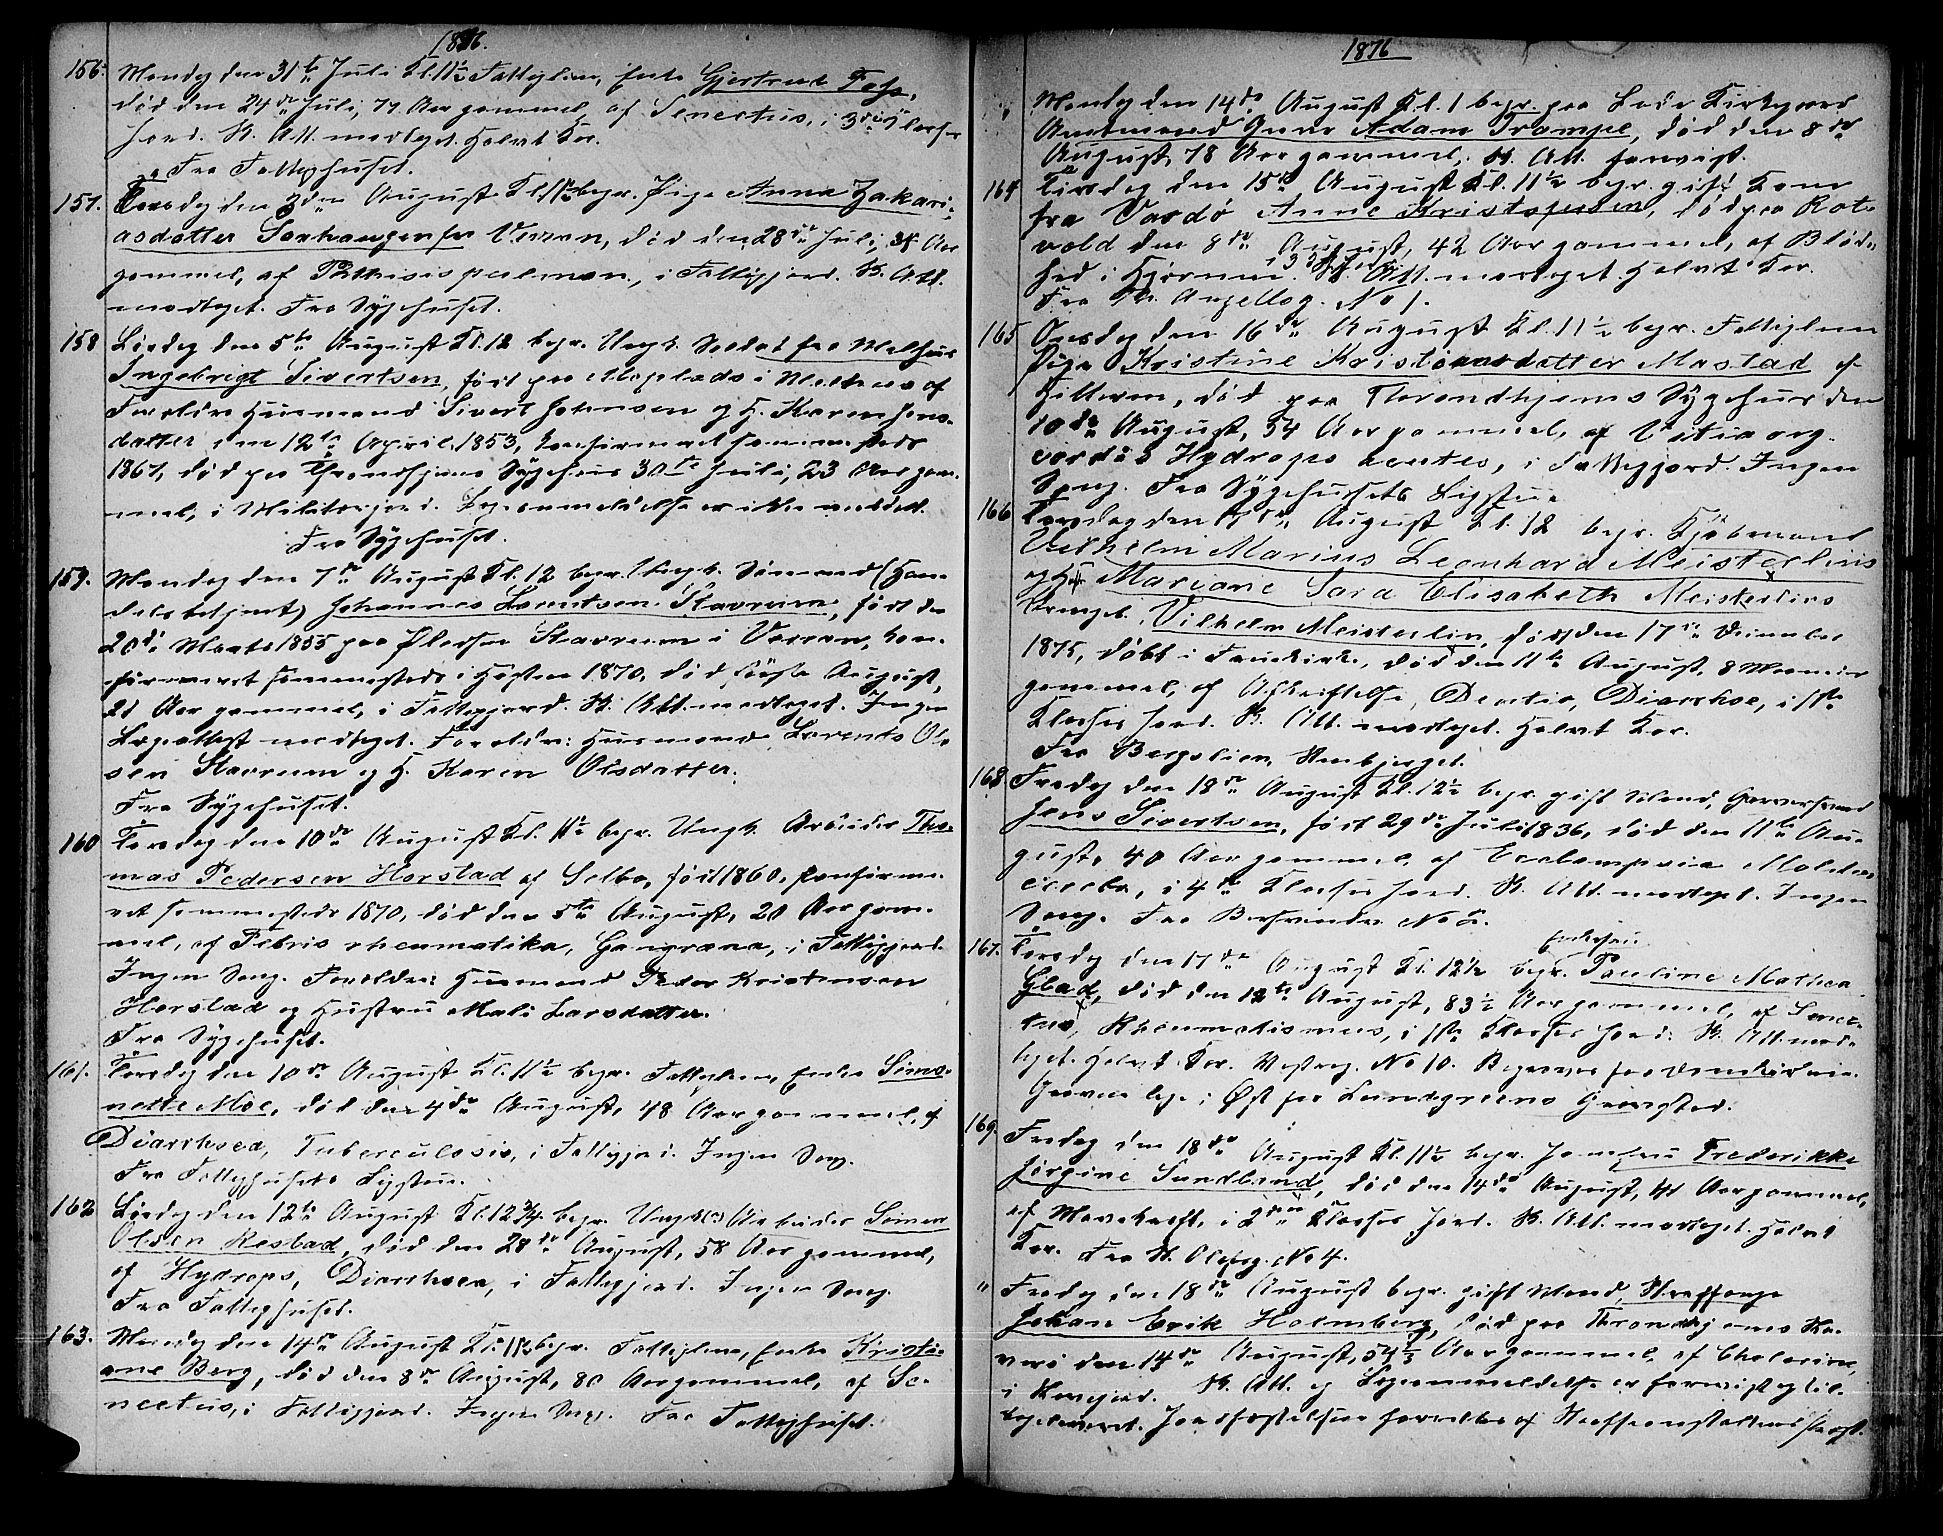 1876.
156. Mandag den 31te Juli Kl. 11½ Fattiglem, Enke Gjertrud
død den 24de Juli, 77 Aar gammel, af Senectus, i 3die Klasses
Jord. K. Att. modtaget. Halvt Kor.
Fra Fattighuset.
157. den August Kl. 11½ begr. Pige Anna Zakari-
asdatter Verran, død den 28de Juli, Aar
gammel, af Pthisis pulmon., i Fattigjord. K. Att.
modtaget. Fra Sygehuset.
158 Lørdag den 5te August Kl. 12 begr. Ungk. Soldat fra Melhus
Ingebrigt Sivertsen, født paa Moplads i Melhus af
Forældre Husmand Sivert Johnsen og H. Karen Jons-
datter den 12te April 1853, konfirmeret sammesteds
1867, død paa Throndhjems Sygehus 30te Juli, 23 Aar gam-
mel, i Militærjord. Lægeanmeldelse er ikke meddelt.
Fra Sygehuset.
159. Mandag den 7de August Kl. 12 begr. Ungk. Sømand (Han-
delsbetjent) Johannes Lorentsen Stavrum, født den
20de Marts 1855 paa Pladsen Stavrum i Verran, kon-
firmeret sammesteds i Høsten 1870, død første August,
21 Aar gammel, i Fattigjord. K. Att. modtaget. Ingen
Lægeattest modtaget. Forældre: Husmand Lorents Ol-
sen Stavrum og H. Karen Olsdatter.
Fra Sygehuset.
160 Torsdag den 10de August Kl. 11½ begr. Ungk. Arbeider Tho-
mas Pedersen Horstad af Selbo, født 1860, konfirme-
ret sammesteds 1870, død den 5te August, 20 Aar gam-
mel, af Febris rheumatika, Gangræna, i Fattigjord.
Ingen Sang. Forældre: Husmand Peder Kristensen
Horstad og Hustru Mali Larsdatter.
Fra Sygehuset.
161. Torsdag den 10de August Kl. 11½ begr. Fattiglem, Enke Simo-
nette Moe, død den 4de August, 48 Aar gammel, af
Diarrhoea, Tuberculosis, i Fattigjord. Ingen Sang.
Fra Fattighusets Ligstue.
162 Lørdag den 12te August Kl. 12¾ begr. Ungk. Arbeider Simon
Olsen Restad, død den 28de August, 58 Aar gammel,
af Hydrops, Diarrhoea, i Fattigjord. Ingen Sang.
Fra Fattighuset.
163. Mandag den 14de August Kl. 11½ begr. Fattiglem, Enke Kristi-
ane Berg, død den 8de August, 80 Aar gammel, af Se-
nectus, i Fattigjord. Ingen Sang. Fra Fattighuset.
1876
" Mandag den 14de August Kl. 1 begr. paa Lade Kirkegaard
Amtmand Adam Trampe, død den 8de
August, 78 Aar gammel. K. Att. forevist.
164 Tirsdag den 15de August Kl. 11½ begr. gift Kone
fra Vardø Anne Kristofersen, død paa Rot-
vold den 8de August, 42 Aar gammel, af Blød-
hed i Hjernen. K. Att. modtaget. Halvt Kor.
Fra Th. Angellsg. No 1.
165 Onsdag den 16de August Kl. 11½ begr. Fattiglem
Pige Kristine Kristiansdatter Mastad af
Hitteren, død paa Throndhjems Sygehus den
10de August, 54 Aar gammel, af Vitia org.
cordis Hydrops, i Fattigjord. Ingen
Sang. Fra Sygehusets Ligstue.
166 Torsdag den 17de August Kl. 12 begr. Kjøbmand
Vilhelm Marius Leonhard Meisterlins
og H. Marjane Sara Elisabeth Meisterlins
Drengeb. Vilhelm Meisterlin, født den 17de December
1875, døbt i Fruekirke, død den 11te August, 8 Maaneder
gammel, af Afkræftelse, Dentio, Diarrhoe, i 1ste
Klasses Jord. K. Att. modtaget. Halvt Kor.
Fra Bergslien, Stenbjerget.
168 Fredag den 18de August Kl. 12½ begr. gift Mand, Garversvend
Jens Sivertsen, født 29de Juli 1836, død den 11te Au-
gust, 40 Aar gammel, af Ecclampsia
i 4de Klasses Jord. K. Att. modtaget. Ingen
Sang. Fra No 2.
167. Torsdag den 17de August Kl. 12½ begr. Enkefru Pauline Mathea
Glad, død den 12te August, 83½ Aar gammel, af Senec-
tus, Rheumatismus, i 1ste Klasses Jord. K. Att. mod-
taget. Halvt Kor. No 10. Begraves fra Domkirken.
Graven lige i Øst fra Lundgreens Gravsted.
169. Fredag den 18de August Kl. 11½ begr. Jomfru Frederikke
Jørgine Sundland, død den 14de August, 41 Aar gammel,
af Mavekræft, i 2den Klasses Jord. K. Att. modtaget. Halvt
Kor. Fra St. Olafsg. No 4.
" Fredag den 18de August begr. gift Mand, Straffange
Johan Erik Holmberg, død paa Throndhjems Sla-
veri den 14de August, 54 Aar gammel, af Cholerine,
i K. Att. og Lægeanmeldelse er forevist og til-
bageleveret. Jordfæstelsen forrettes af Straffeanstaltens Præst.